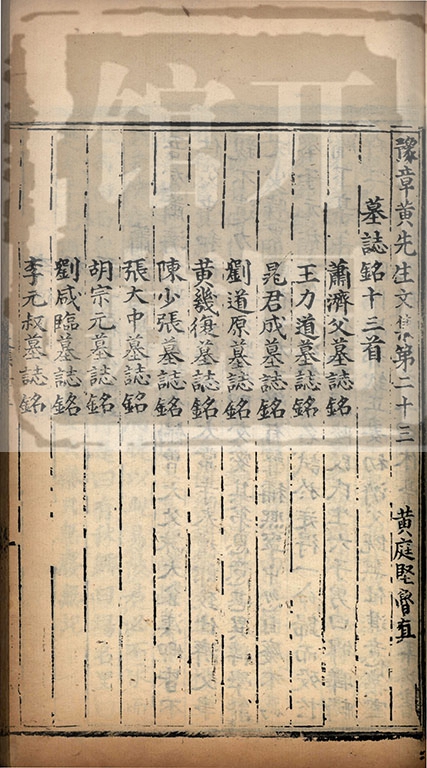 豫章黃先生文集第二十三 黃庭堅魯直
墓誌銘十三首
蕭濟父墓誌銘
王力道墓誌銘
晁君成墓誌銘
劉道原墓誌銘
黃幾復墓誌銘
陳少張墓誌銘
張大中墓誌銘
胡宗元墓誌銘
劉咸臨墓誌銘
李元叔墓誌銘